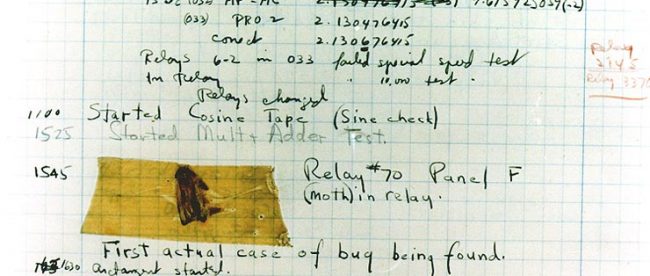 (033) PRO 2 2.130476415
conect 2.130676415
Relays 6-2 in 033 failed special speed test
in Relay " 10,000 test .
Relays changed
1100 Started Cosine Tape (Sine check)
1525 Started Mult + Adder Test.
1545 Relay #70 Panel F
(moth) in relay.
First actual case of bug being found.
1630 antangent started.
Relay
2145
Relay 3370